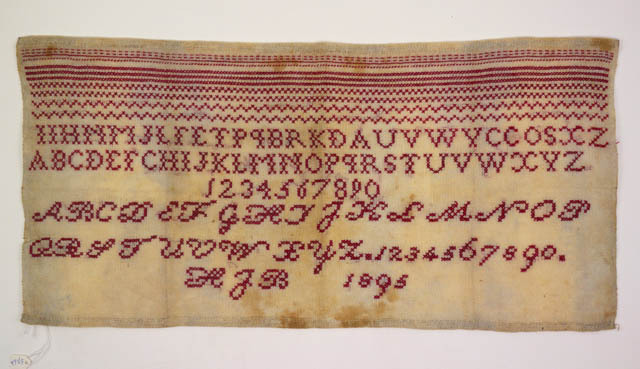 IIHNMJLFETPqBRKDAUVWYCGOSXZ
ABCDEFGHIJKLMNOPqRSTUVWXYZ
1234567890
ABCD EF GHI JKL MNOP
QRST UVW XYZ. 1234567890.
HJB 1895